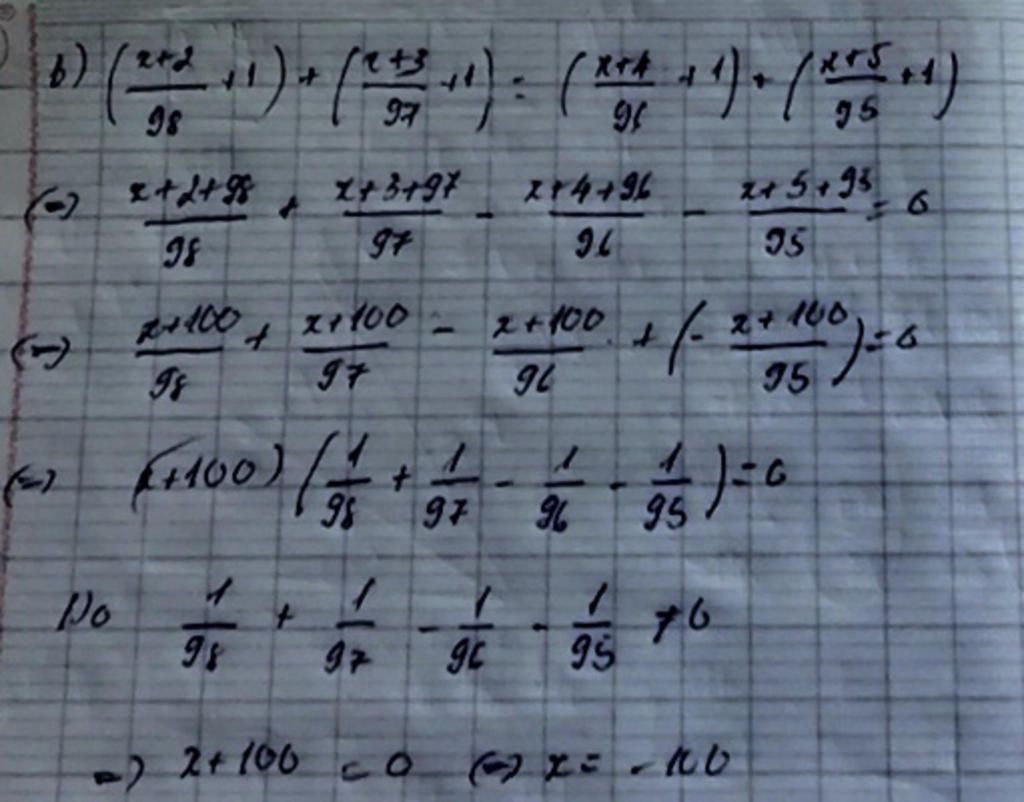 b) ((x+2)/98 + 1) + ((x+3)/97 + 1) = ((x+4)/96 + 1) + ((x+5)/95 + 1)
(=) (x+2+98)/98 + (x+3+97)/97 - (x+4+96)/96 - (x+5+95)/95 = 0
(=) (x+100)/98 + (x+100)/97 - (x+100)/96 + (- (x+100)/95) = 0
(=) (x+100) (1/98 + 1/97 - 1/96 - 1/95) = 0
Do 1/98 + 1/97 - 1/96 - 1/95 ≠ 0
=) x+100 = 0 (=) x = -100